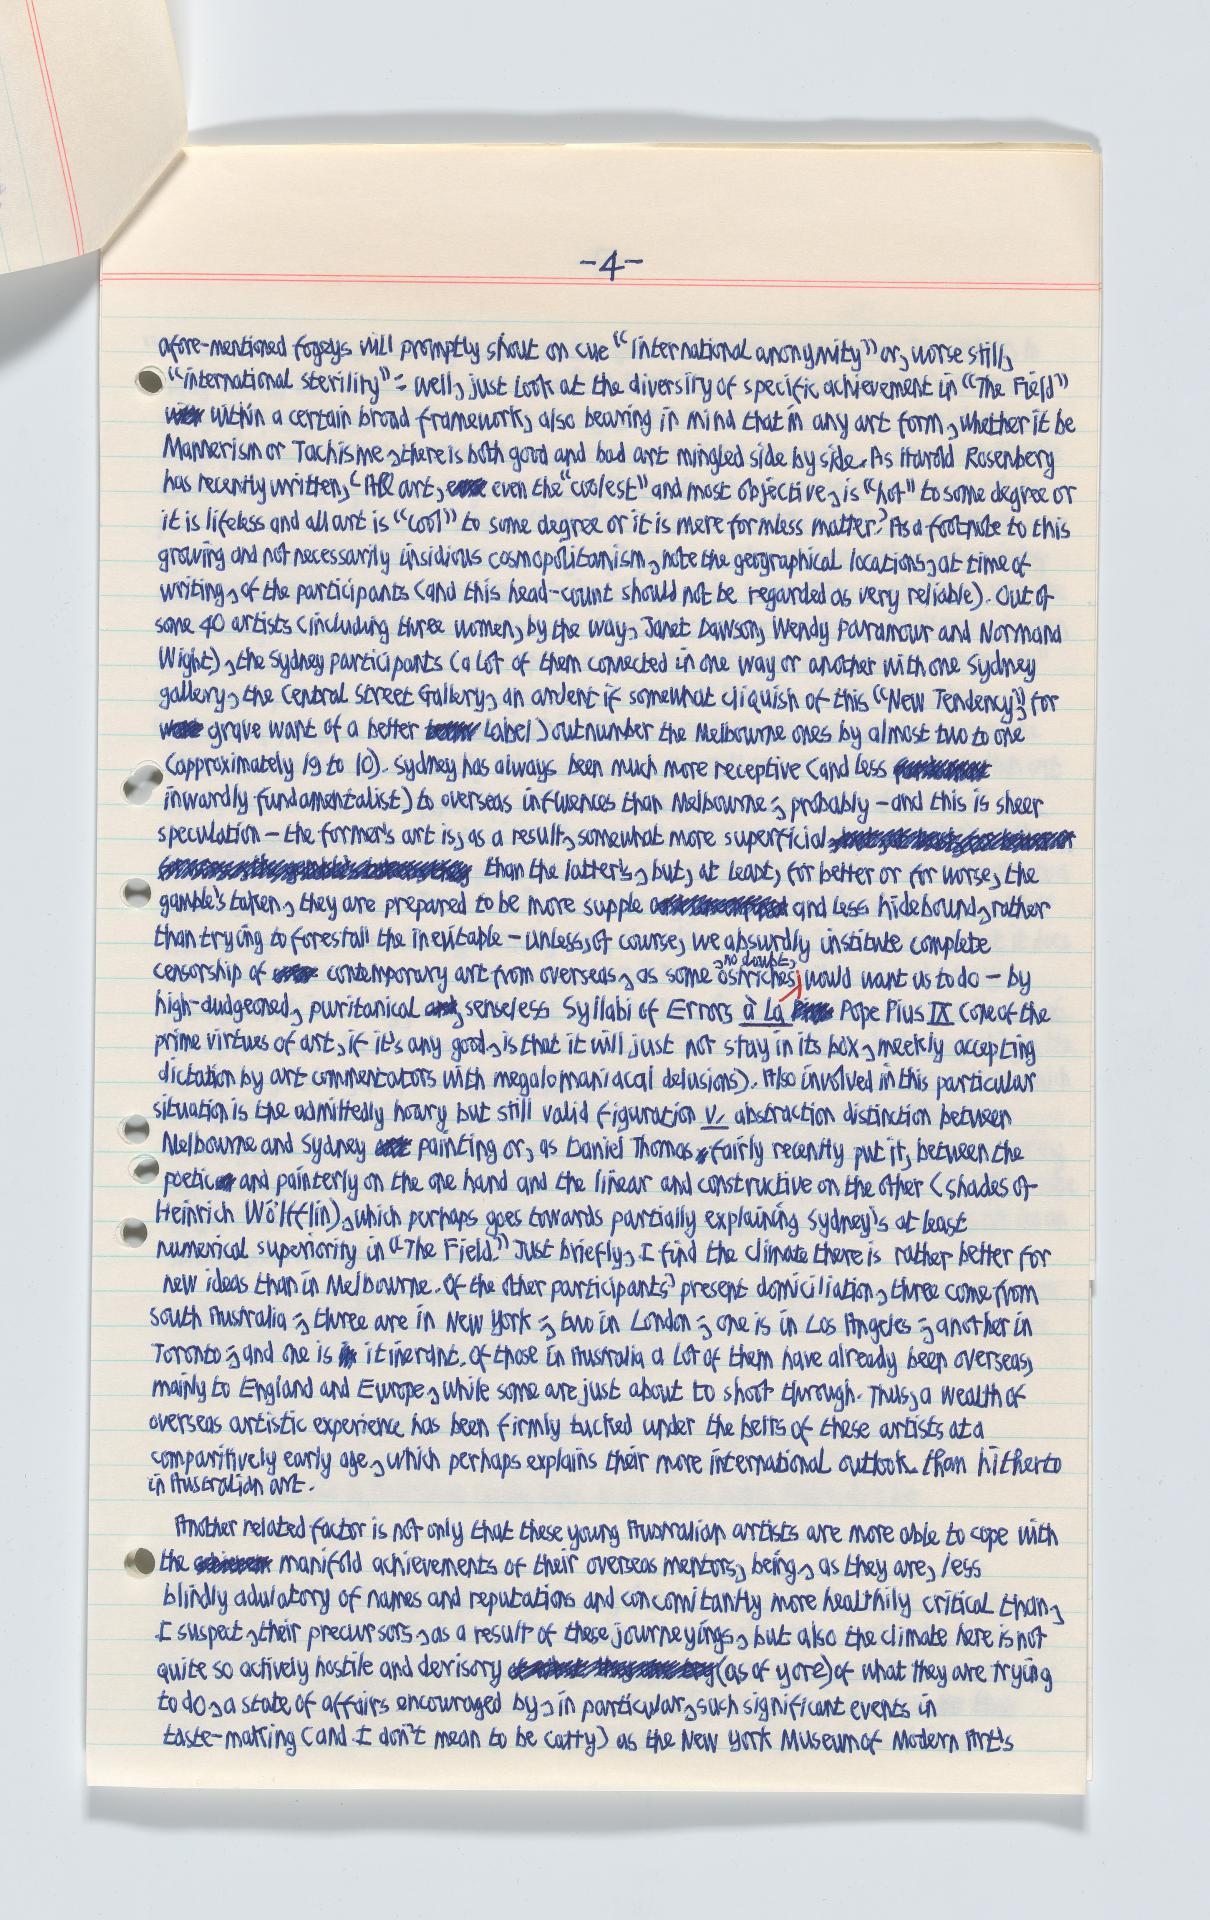 -4-
afore-mentioned fogeys will promptly shout on cue "international anonymity" or, worse still,
"international sterility": well, just look at the diversity of specific achievement in "The Field"
within a certain broad framework, also bearing in mind that in any art form, whether it be
Mannerism or Tachisme, there is both good and bad art mingled side by side. As Harold Rosenberg
has recently written, 'All art, even the "coolest" and most objective, is "hot" to some degree or
it is lifeless and all art is "cool" to some degree or it is mere formless matter.' As a footnote to this
growing and not necessarily insidious cosmopolitanism, note the geographical locations, at time of
writing, of the participants (and this head-count should not be regarded as very reliable). Out of
some 40 artists (including three women, by the way, Janet Dawson, Wendy Paramour and Normand
Wight), the Sydney participants (a lot of them connected in one way or another with one Sydney
gallery, the Central Street Gallery, an ardent if somewhat cliquish of this "New Tendency", for
grave want of a better label) outnumber the Melbourne ones by almost two to one
(approximately 19 to 10). Sydney has always been much more receptive (and less
inwardly fundamentalist) to overseas influences than Melbourne; probably – and this is sheer
speculation – the former's art is, as a result, somewhat more superficial
than the latter's, but, at least, for better or for worse, the
gamble's taken, they are prepared to be more supple and less hidebound, rather
than trying to forestall the inevitable – unless, of course, we absurdly institute complete
censorship of contemporary art from overseas, as some ostriches, no doubt, would want us to do – by
high-dudgeoned, puritanical, senseless Syllabi of Errors à la Pope Pius IX (one of the
prime virtues of art, if it's any good, is that it will just not stay in its box, meekly accepting
dictation by art commentators with megalomaniacal delusions). Also involved in this particular
situation is the admittedly hoary but still valid figuration v. abstraction distinction between
Melbourne and Sydney painting or, as Daniel Thomas fairly recently put it, between the
poetic and painterly on the one hand and the linear and constructive on the other (shades of
Heinrich Wölfflin), which perhaps goes towards partially explaining Sydney's at least
numerical superiority in "The Field." Just briefly, I find the climate there is rather better for
new ideas than in Melbourne. Of the other participants' present domiciliation, three come from
South Australia; three are in New York; two in London; one is in Los Angeles; another in
Toronto; and one is itinerant. Of those in Australia a lot of them have already been overseas,
mainly to England and Europe, while some are just about to shoot through. Thus, a wealth of
overseas artistic experience has been firmly tucked under the belts of these artists at a
comparitively early age, which perhaps explains their more international outlook than hitherto
in Australian art.
Another related factor is not only that these young Australian artists are more able to cope with
the manifold achievements of their overseas mentors, being, as they are, less
blindly adulatory of names and reputations and concomitantly more healthily critical than,
I suspect, their precursors, as a result of these journeyings, but also the climate here is not
quite so actively hostile and derisory (as of yore) of what they are trying
to do, a state of affairs encouraged by, in particular, such significant events in
taste-making (and I don't mean to be catty) as the New York Museum of Modern Art's